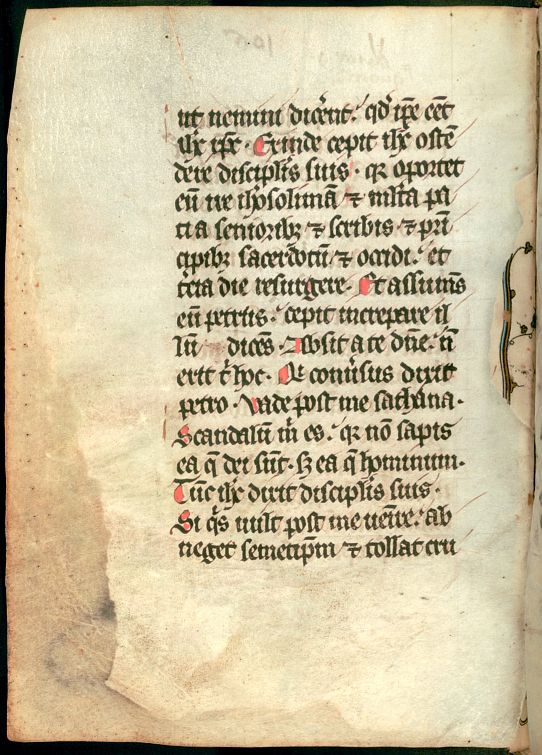 ut nemini dicerẽt. qđ ip̃e eẽt
ih̃c xp̃c. Exinde cepit ih̃c ostẽ
dere disciplĩs suis. qꝛ oportet
eũ ire ih̃rosolimã ⁊ mĩta pa
ti a seniorib₃ ⁊ scribis ⁊ prĩ
cipib₃ sacerdotũ ⁊ occidi. et
tẽia die resurgere. Et assumẽs
eũ petrus. cepit increpare il
lũ dicẽs. Absit a te dñe. nõ
erit t̃ hoc. Qui conũsus dixit
petro. Vade post me sathana.
Scandalũ m̃ es. qꝛ nõ sapis
ea q̃ dei sũt. s₃ ea q̃ hominum.
Tũc ih̃c dixit disciplĩs suis.
Si q̃s uult post me uenĩre. ab
neget semetip̃m ⁊ tollat cru